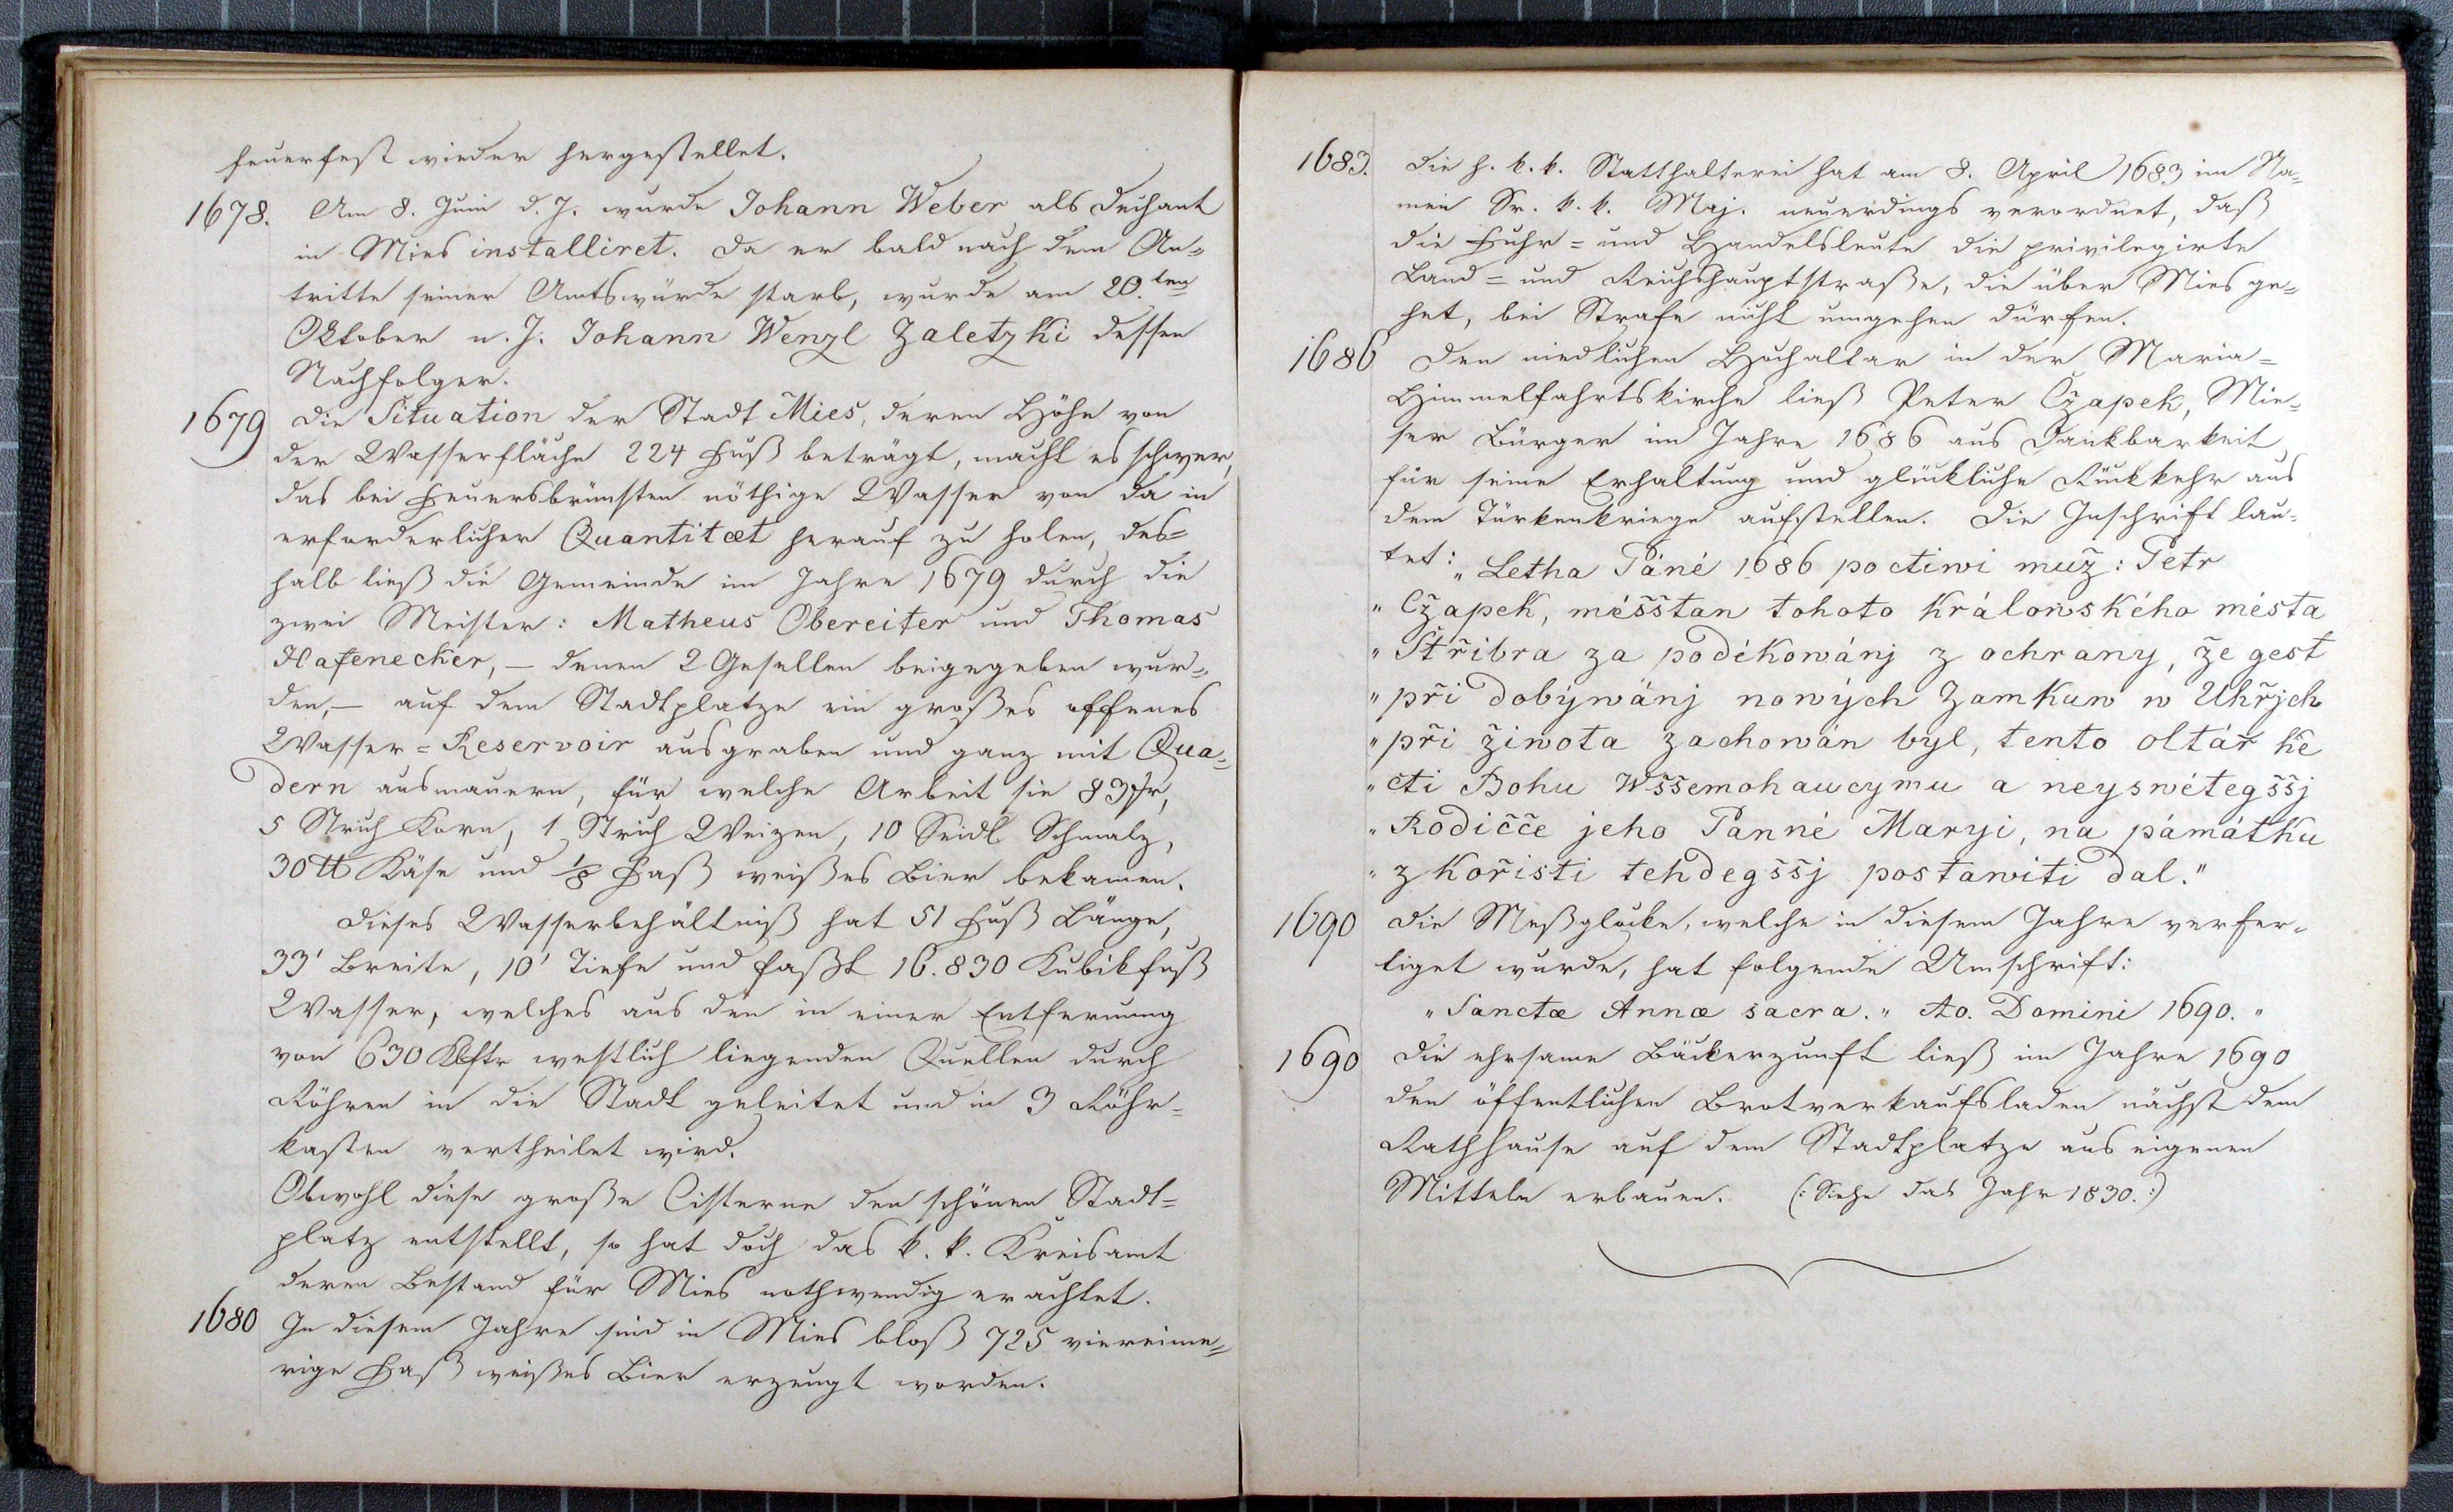 feuerfest wieder hergestellet.
1678. Am 8. Juni d. J. wurde Johann Weber als Dechant
in Mies installiret. Da er bald nach dem An=
tritte seiner Amtswürde starb, wurde am 20.ten
Oktober n. J. Johann Wenzl Zaletzki dessen
Nachfolger.
1679 Die Situation der Stadt Mies, deren Höhe von
der Wasserfläche 224 Fuß beträgt, macht es schwer,
das bei Feuersbrünsten nöthige Wasser von da in
erforderlicher Quantitæt herauf zu holen, des=
halb ließ die Gemeinde im Jahre 1679 durch die
zwei Meister: Matheus Obereiter und Thomas
Hafenecker, — denen 2 Gesellen beigegeben wur=
den, — auf dem Stadtplatze ein großes offenes
Wasser=Reservoir ausgraben und ganz mit Qua=
dern ausmauern, für welche Arbeit sie 83 fr,
5 Strich Korn, 1 Strich Weizen, 10 Seidl Schmalz,
30 ℔ Käse und 1/8 Faß weißes Bier bekamen.
Dieses Wasserbehältniß hat 51 Fuß Länge,
33' Breite, 10' Tiefe und faßt 16.830 Kubikfuß
Wasser, welches aus den in einer Entfernung
von 630 Klftr westlich liegenden Quellen durch
Röhren in die Stadt geleitet und in 3 Röhr=
kasten vertheilet wird.
Obwohl diese große Cisterne den schönen Stadt=
platz entstellt, so hat doch das k. k. Kreisamt
deren Bestand für Mies nothwendig erachtet.
1680 In diesem Jahre sind in Mies bloß 725 viereime=
rige Faß weißes Bier erzeugt worden.
1683. Die h. k. k. Statthalterei hat am 8. April 1683 im Na=
men Sr. k. k. Maj. neuerdings verordnet, daß
die Fuhr= und Handelsleute die privilegirte
Land= und Reichshauptstraße, die über Mies ge=
het, bei Strafe nicht umgehen dürfen.
1686 Den niedlichen Hochaltar in der Maria=
Himmelfahrtskirche ließ Peter Čzapek, Mie=
ser Bürger im Jahre 1686 aus Dankbarkeit
für seine Erhaltung und glückliche Rückkehr aus
dem Türkenkriege aufstellen. Die Inschrift lau=
tet: „Letha Páné 1686 poctiwi muž: Petr
„Čzapek, měsštan tohoto Králowského města
„Střibra za poděkowánj z ochrany, že gest
„při dobýwánj nowých Zamkuw w Uhřjch
„při žiwota zachowán byl, tento oltář ke
„cti Bohu Wššemohaucymu a neyswětegššj
„Rodičče jeho Panně Maryi, na památku
„z kořisti tehdegššj postawiti dal."
1690 Die Meßglocke, welche in diesem Jahre verfer=
tiget wurde, hat folgende Umschrift:
„Sanctæ Annæ sacra." Ao. Domini 1690."
1690 Die ehrsame Bäckerzunft ließ im Jahre 1690
den öffentlichen Brotverkaufsladen nächst dem
Rathhause auf dem Stadtplatze aus eigenen
Mitteln erbauen. (: Siehe das Jahr 1830. :)